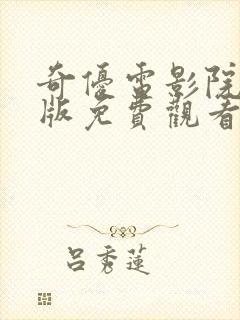 奇優電影院
版免費觀看
呂秀蓮